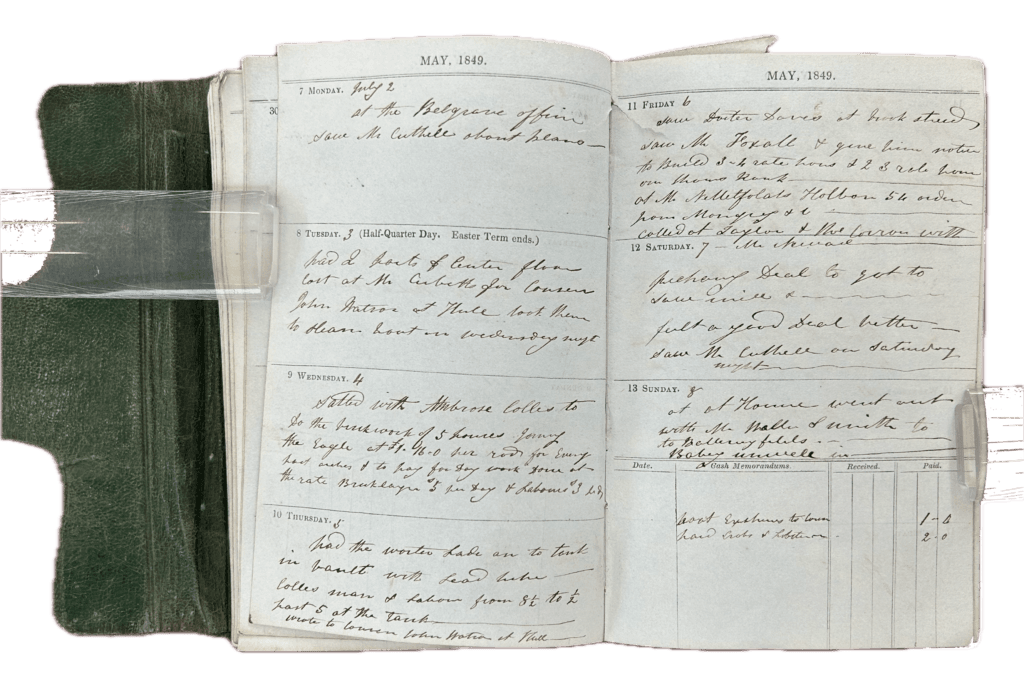 MAY, 1849.
7 MONDAY. July 2
at the Belgrave office
saw Mr Cuthell about plans
8 TUESDAY. 3 (Half-Quarter Day. Easter Term ends.)
had 2 Parts of Center floor
Cost at Mr Cubitt for Cousen
John Watson & Hull took them
to steam boat on wednesday night
9 WEDNESDAY. 4
Settled with Ambrose Colles to
Do the brickwork of 5 houses Joining
the Eagle at per rod for Every
& to pay for Day work done at
the rate Bricklayer 5 per Day & Labourer 3
10 THURSDAY. 5
had the water Laid on to tank
in vault with Lead
Colles man & Labour from 8½ to ½
past 5 at the tank
wrote to Cousen John Watson at Hull
MAY, 1849.
30
11 FRIDAY 6
saw Doctor Davis at street
saw Mr Foxall & give him notice
to Build 3-4 rate hous & 2 3 rate hous
on thous Bank
at Mr Nettelfolds Holbon 54 order
from &c
called at Taylor & the with
12 SATURDAY. 7 - Mr
Deal to got to
Saw mill &
felt a good Deal better
saw Mr Cuthell on Saturday
night
13 SUNDAY. 8
at at Home went out
with Mr & Smith to
to Batterseyfields
Babey unwell in
Date. Cash Memorandums. Received. Paid.
boat Expenses to town 1-6
paid Crabs & Lobster 2-0